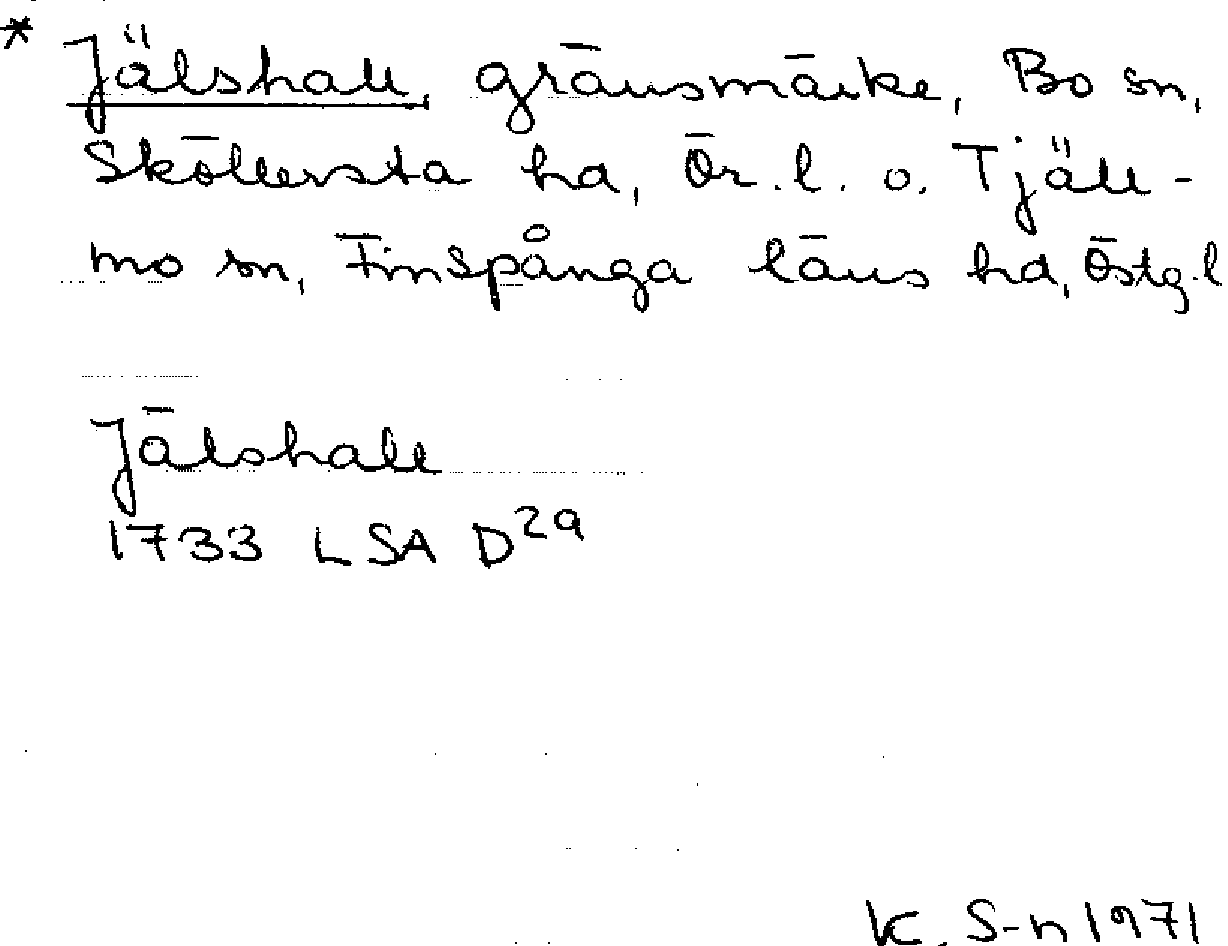 * Jälshall, gränsmärke, Bo sn,
Sköllersta hd, Ör. l. o. Tjäll-
mo sn, Finspånga läns hd, Östg. l
Jälshall
1733 LSA D29
K. S-n 1971